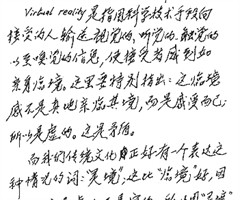 Virtual reality是指用科学技术手段向
接受的人输送视觉的、听觉的、触觉的
以至嗅觉的信息,使接受者感到如
亲身临境。这里要特别指出:这临境
感不是真地亲临其境,而是感受而已;
所以是虚的。这是矛盾。
向我们传统文化正好有一个表达这
种情况的词:“灵境”;这比“临境”好,因